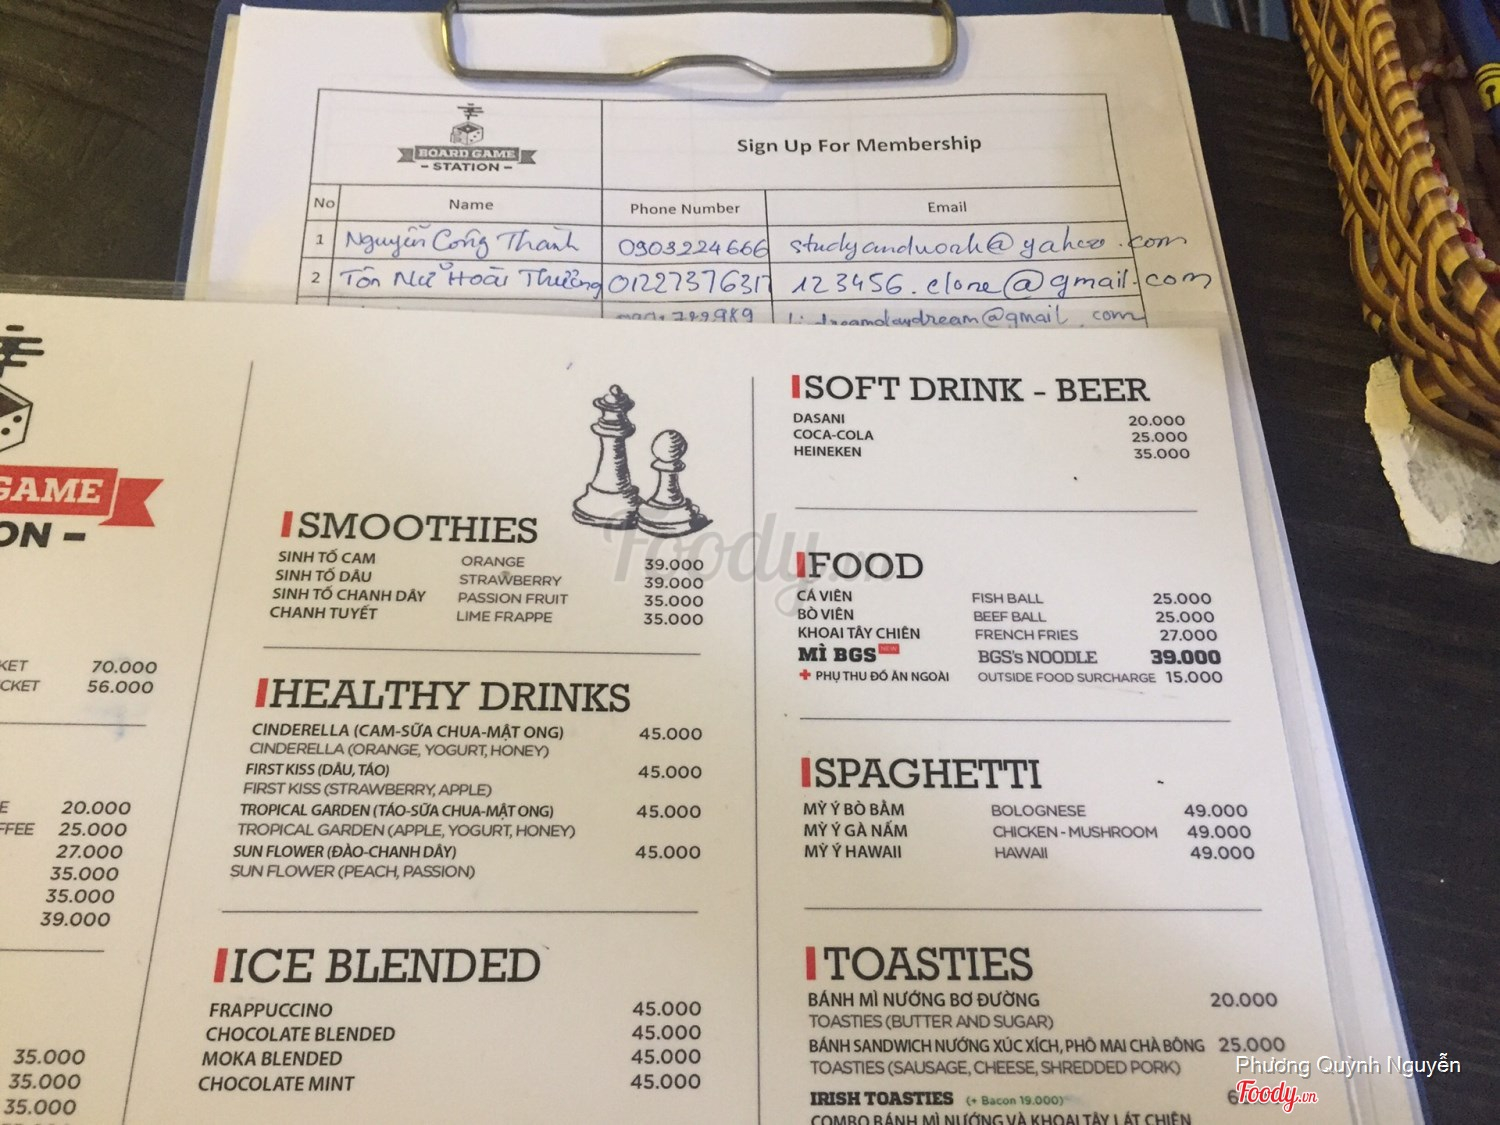 BOARD GAME
- STATION -
Sign Up For Membership
No Name Phone Number Email
1 Nguyễn Công Thành 0903224666 studyandwork@yahoo.com
2 Tôn Nữ Hoài Thương 01227376317 123456.clone@gmail.com
GAME
ON -
KET 70.000
CKET 56.000
E 20.000
FFEE 25.000
27.000
35.000
35.000
39.000
35.000
35.000
35.000
SMOOTHIES
SINH TỐ CAM ORANGE 39.000
SINH TỐ DÂU STRAWBERRY 39.000
SINH TỐ CHANH DÂY PASSION FRUIT 35.000
CHANH TUYẾT LIME FRAPPE 35.000
HEALTHY DRINKS
CINDERELLA (CAM-SỮA CHUA-MẬT ONG) 45.000
CINDERELLA (ORANGE, YOGURT, HONEY)
FIRST KISS (DÂU, TÁO) 45.000
FIRST KISS (STRAWBERRY, APPLE)
TROPICAL GARDEN (TÁO-SỮA CHUA-MẬT ONG) 45.000
TROPICAL GARDEN (APPLE, YOGURT, HONEY)
SUN FLOWER (ĐÀO-CHANH DÂY) 45.000
SUN FLOWER (PEACH, PASSION)
ICE BLENDED
FRAPPUCCINO 45.000
CHOCOLATE BLENDED 45.000
MOKA BLENDED 45.000
CHOCOLATE MINT 45.000
SOFT DRINK - BEER
DASANI 20.000
COCA-COLA 25.000
HEINEKEN 35.000
FOOD
CÁ VIÊN FISH BALL 25.000
BÒ VIÊN BEEF BALL 25.000
KHOAI TÂY CHIÊN FRENCH FRIES 27.000
MÌ BGS NEW BGS's NOODLE 39.000
+ PHỤ THU ĐỒ ĂN NGOÀI OUTSIDE FOOD SURCHARGE 15.000
SPAGHETTI
MỲ Ý BÒ BẰM BOLOGNESE 49.000
MỲ Ý GÀ NẤM CHICKEN - MUSHROOM 49.000
MỲ Ý HAWAII HAWAII 49.000
TOASTIES
BÁNH MÌ NƯỚNG BƠ ĐƯỜNG 20.000
TOASTIES (BUTTER AND SUGAR)
BÁNH SANDWICH NƯỚNG XÚC XÍCH, PHÔ MAI CHÀ BÔNG 25.000
TOASTIES (SAUSAGE, CHEESE, SHREDDED PORK)
IRISH TOASTIES (+ Bacon 19.000)
COMBO BÁNH MÌ NƯỚNG VÀ KHOAI TÂY LÁT CHIÊN
Foody.vn
Phương Quỳnh Nguyễn
Foody.vn